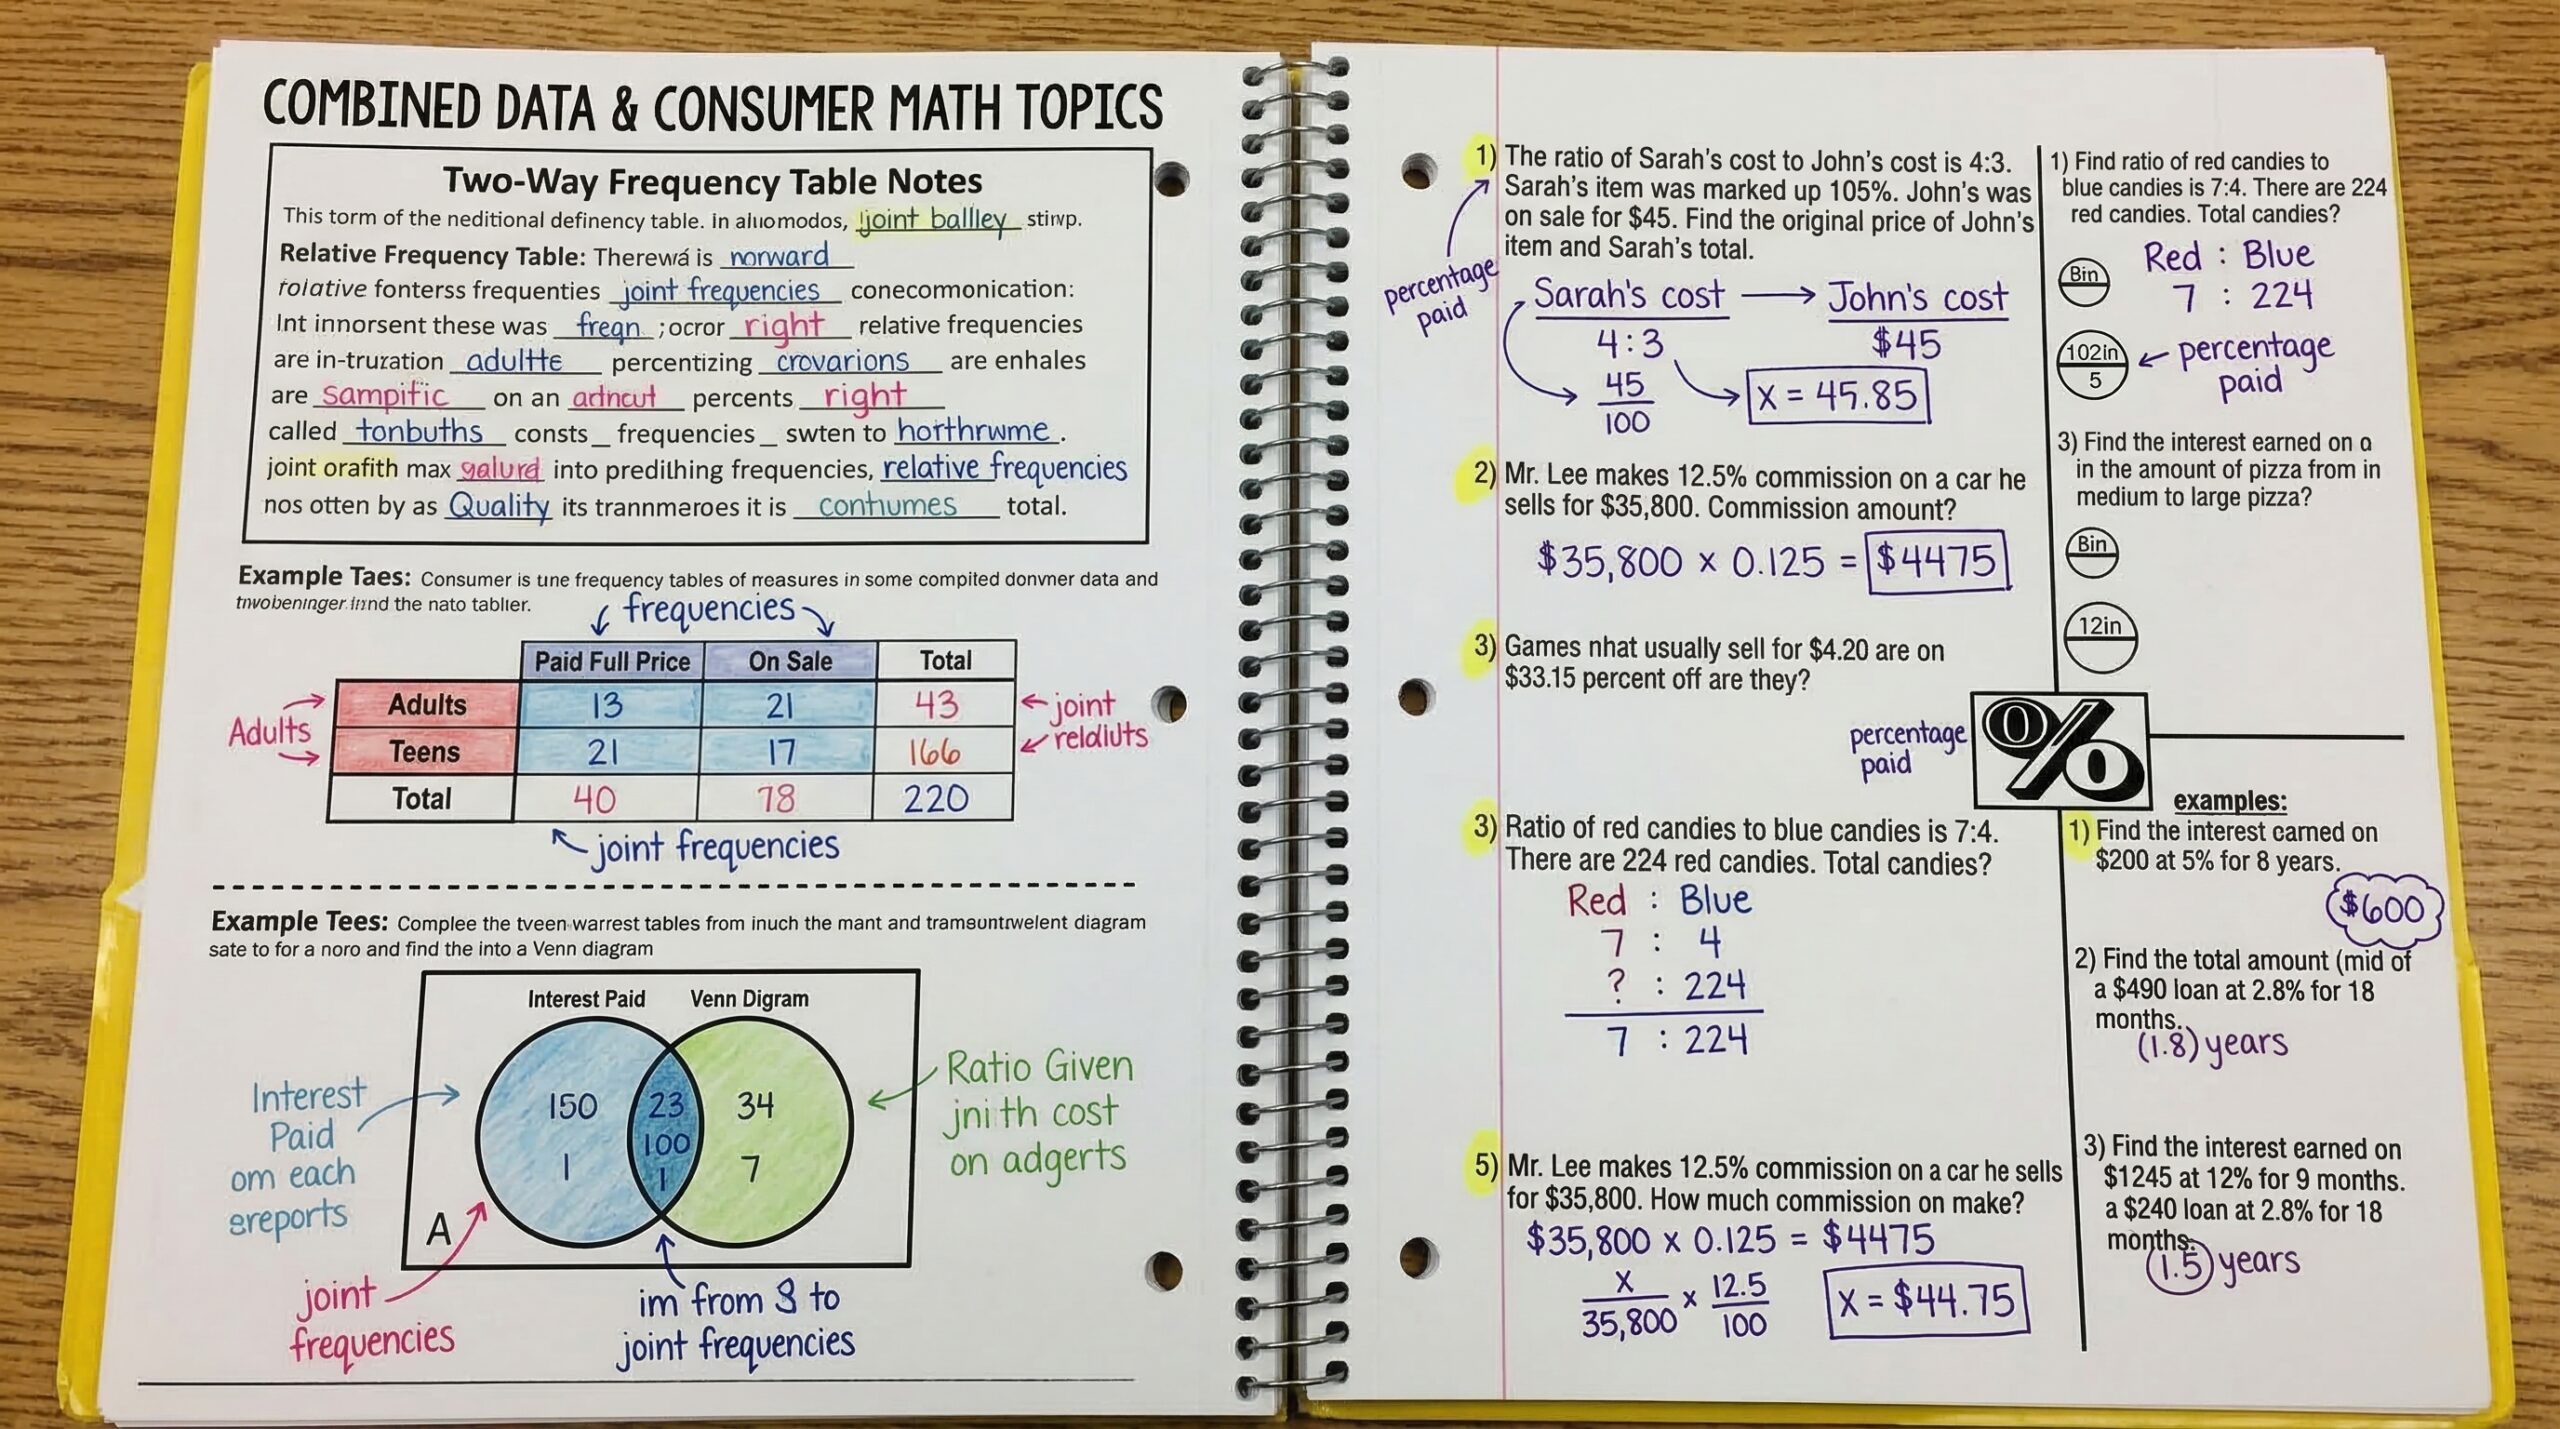 COMBINED DATA & CONSUMER MATH TOPICS
Two-Way Frequency Table Notes
This torm of the neditional definency table. In aluomodos, joint ballley stirvp.
Relative Frequency Table: Therewá is norward
rolative fonterss frequenties joint frequencies conecomonication:
Int innorsent these was freqn ; ocror right relative frequencies
are in-truzation adultte percentizing crovarions are enhales
are Sampific on an adncut percents right
called tonbuths consts_ frequencies_ swten to horthrwme.
joint orafith max galurd into predilhing frequencies, relative frequencies
nos otten by as Quality its trannmaroes it is contiumes total.
Example Taes: Consumer is tne frequency tables of measures in some compited donvner data and
the nato tablier.
frequencies
Paid Full Price On Sale Total
Adults 13 21 43
Teens 21 17 166
Total 40 78 220
Adults
joint
reldluts
joint frequencies
Example Tees: Complee the tveen warrest tables from inuch the mant and diagram
sate to for a noro and find the into a Venn diagram
Interest Paid Venn Digram
150 23 34
100
1 1 7
A
Interest
Paid
om each
ereports
Ratio Given
jnith cost
on adgerts
joint
frequencies
im from 8 to
joint frequencies
1) The ratio of Sarah's cost to John's cost is 4:3.
Sarah's item was marked up 105%. John's was
on sale for $45. Find the original price of John's
item and Sarah's total.
percentage
paid
Sarah's cost John's cost
4:3 $45
45
100
x = 45.85
2) Mr. Lee makes 12.5% commission on a car he
sells for $35,800. Commission amount?
$35,800 x 0.125 = $4475
3) Games nhat usually sell for $4.20 are on
$33.15 percent off are they?
percentage
paid
%
3) Ratio of red candies to blue candies is 7:4.
There are 224 red candies. Total candies?
Red : Blue
7 : 4
? : 224
7 : 224
5) Mr. Lee makes 12.5% commission on a car he sells
for $35,800. How much commission on make?
$35,800 x 0.125 = $4475
x 12.5
35,800 x 100
x = $44.75
1) Find ratio of red candies to
blue candies is 7:4. There are 224
red candies. Total candies?
Red : Blue
7 : 224
Bin
102in
5
percentage
paid
3) Find the interest earned on a
in the amount of pizza from in
medium to large pizza?
Bin
12in
examples:
1) Find the interest carned on
$200 at 5% for 8 years.
$600
2) Find the total amount (mid of
a $490 loan at 2.8% for 18
months.
(1.8) years
3) Find the interest earned on
$1245 at 12% for 9 months.
a $240 loan at 2.8% for 18
months.
(1.5) years